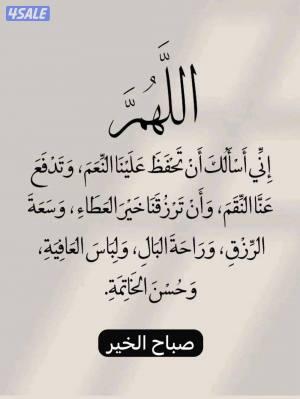 4SALE
اللَّهُمَّ
إِنِّي أَسْأَلُكَ أَنْ تَحْفَظَ عَلَيْنَا النِّعَمَ، وَتَدْفَعَ
عَنَّا النِّقَمَ، وَأَنْ تَرْزُقَنَا خَيْرَ العَطَاءِ، وَسَعَةَ
الرِّزْقِ، وَرَاحَةَ البَالِ، وَلِبَاسَ العَافِيَةِ،
وَحُسْنَ الخَاتِمَةِ.
صباح الخير